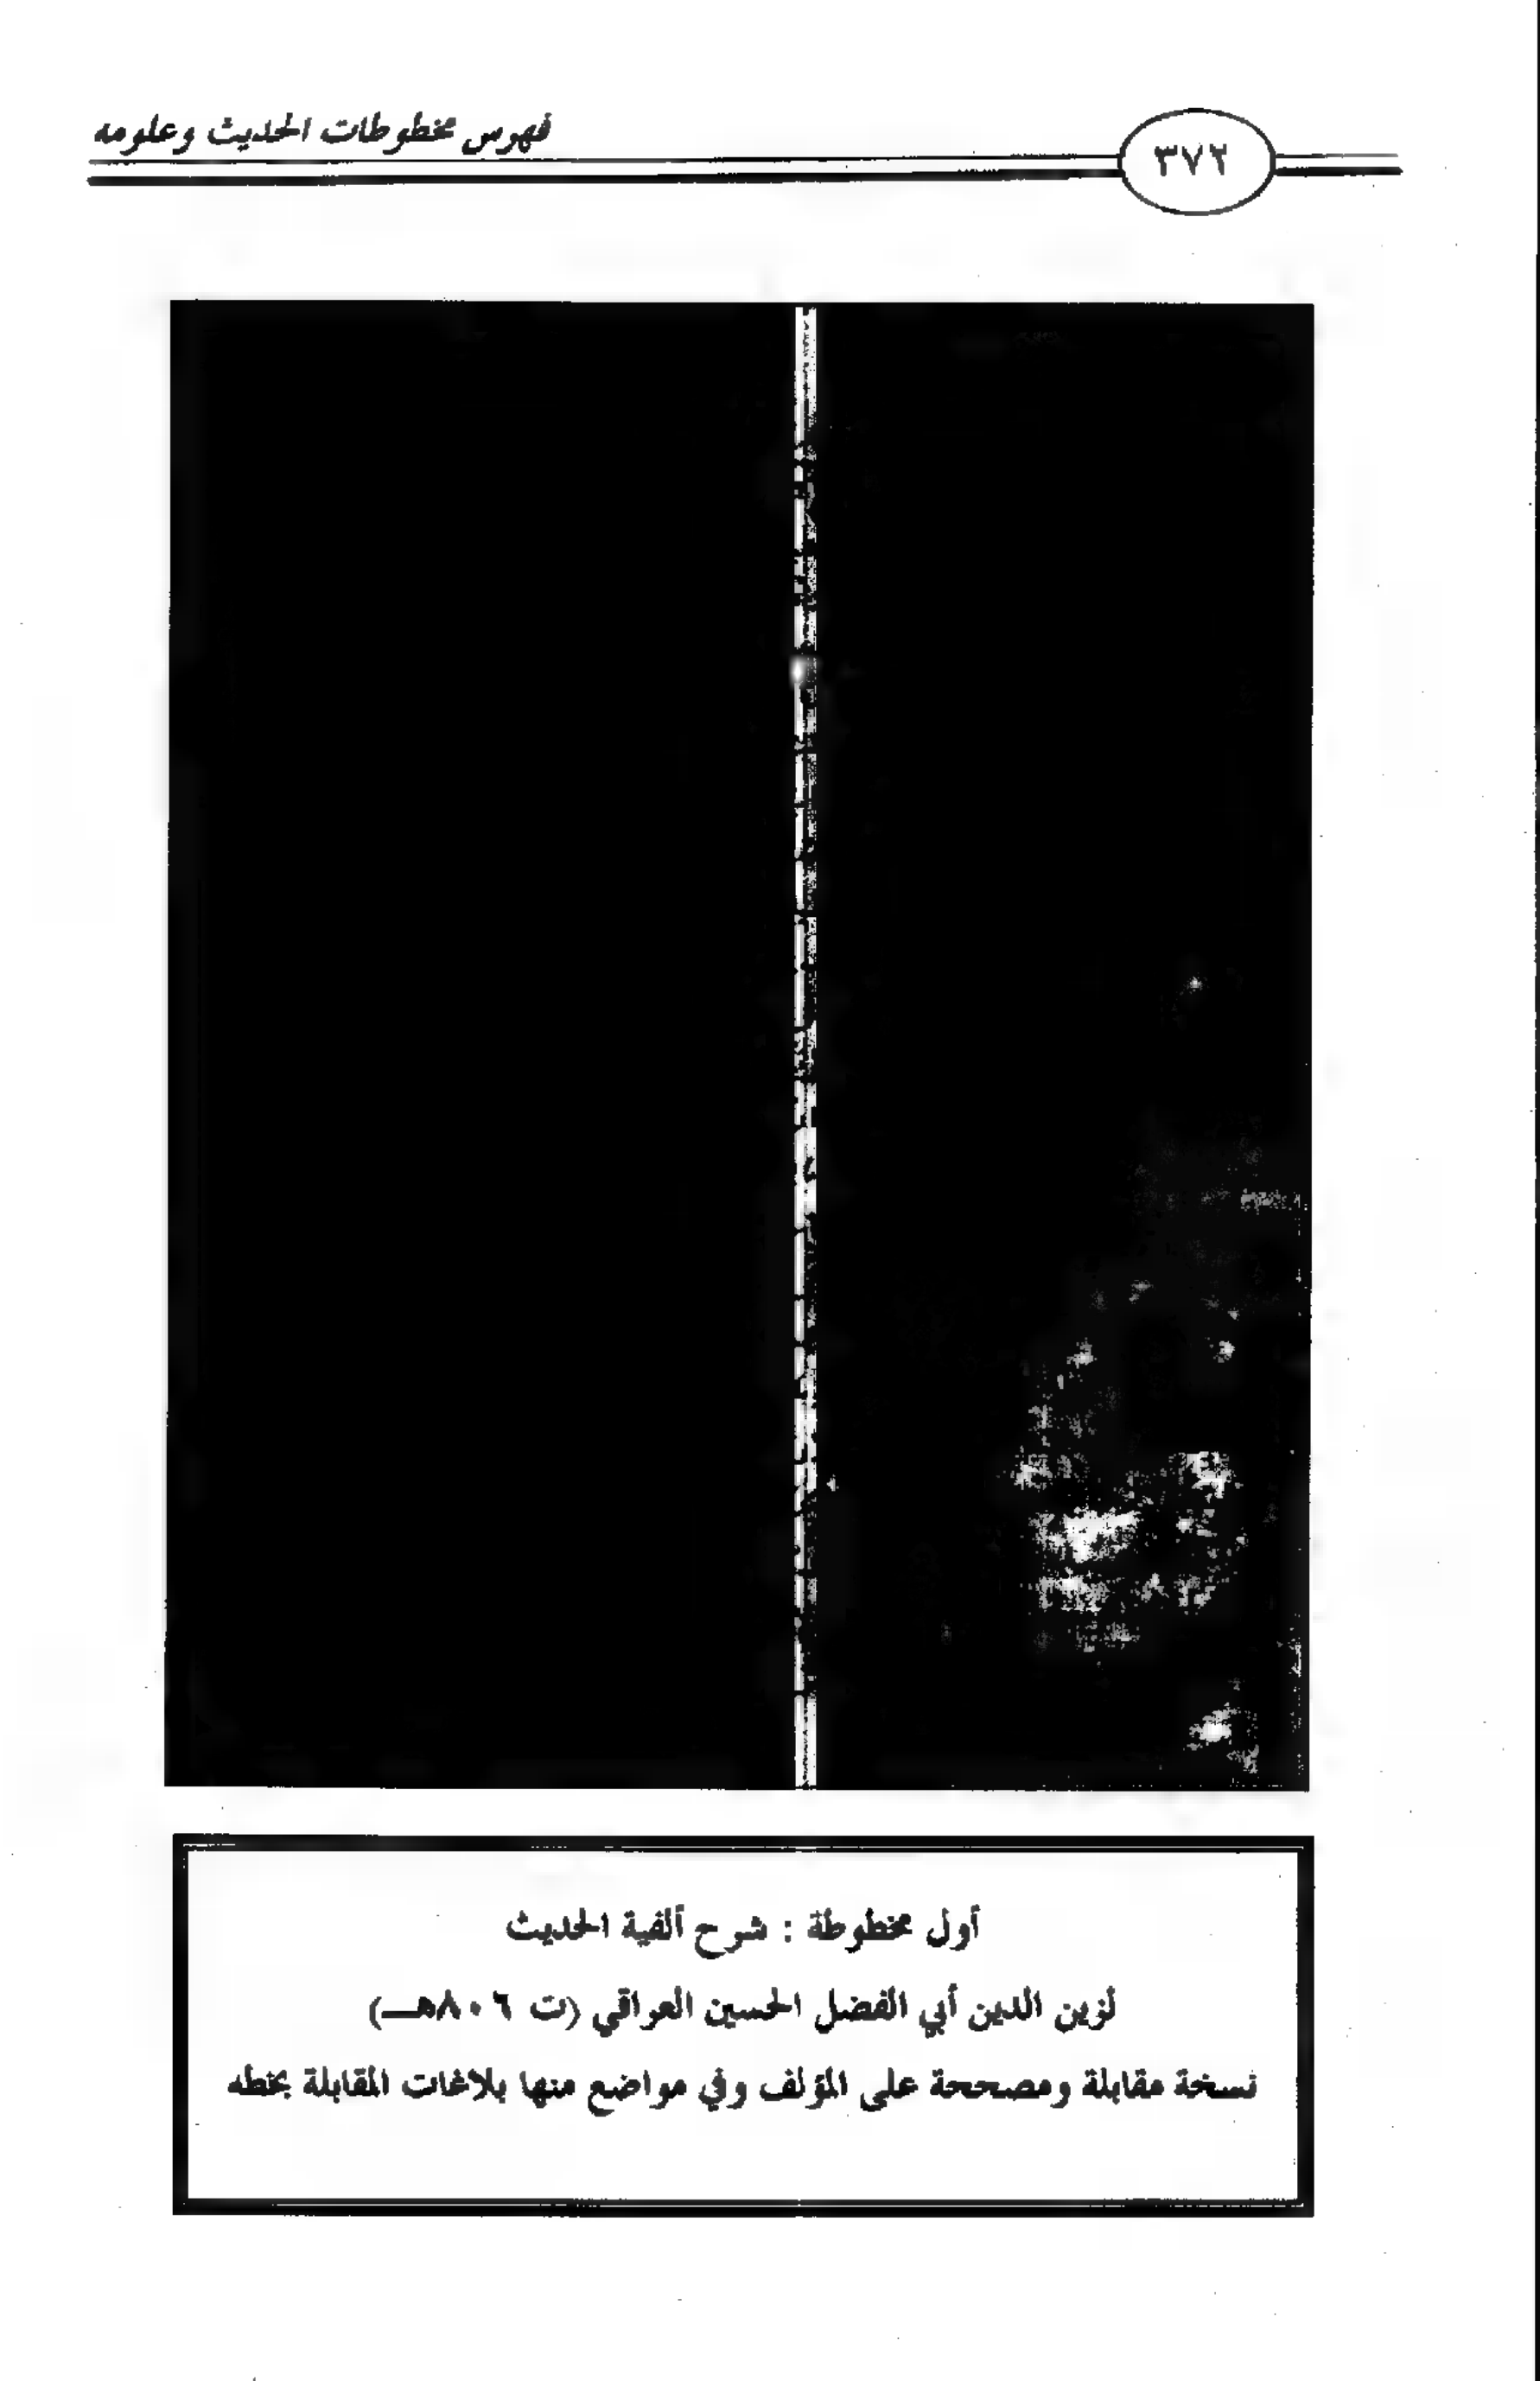 فهرس مخطوطات الحديث وعلومه
٣٧٢
أول مخطوطة : شرح ألفية الحديث
لزين الدين أبي الفضل الحسين العراقي (ت ٨٠٦هـ)
نسخة مقابلة ومصححة على المؤلف وفي مواضع منها بلاغات المقابلة بخطه